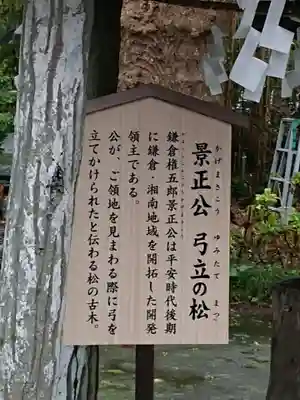 景正公 弓立の松
かげまさこう ゆみたて まつ
鎌倉権五郎景正公は平安時代後期
に鎌倉・湘南地域を開拓した開発
領主である。
公が、ご領地を見まわる際に弓を
立てかけられたと伝わる松の古木。